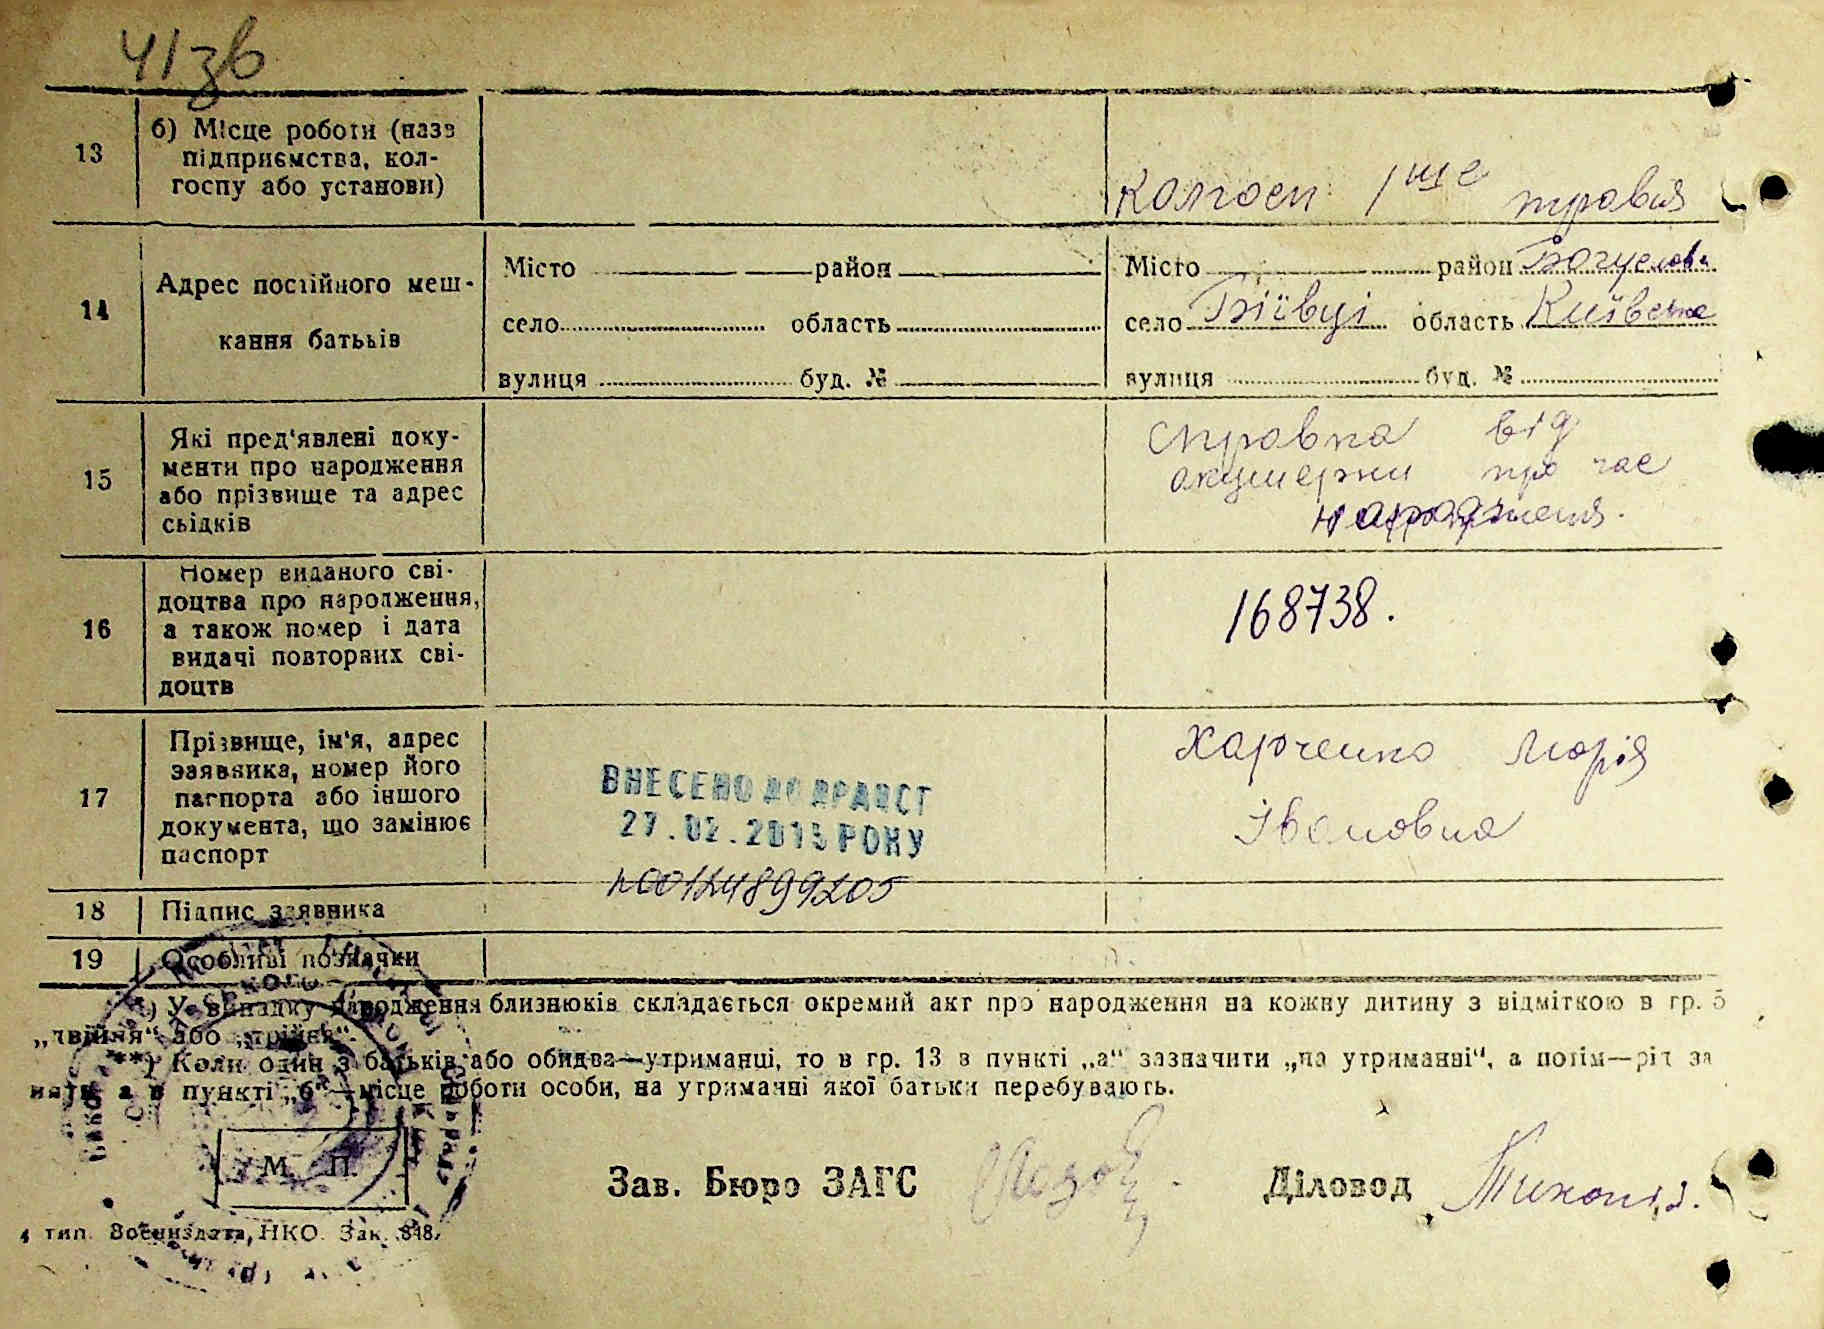 41зв
13
б) Місце роботи (назв
підприємства, кол-
госпу або установи)
Колгосп 1ше травня
14
Адрес постійного меш-
кання батьків
Місто район
село область
вулиця буд. №
Місто район Богуслав
село Бріївці область Київська
вулиця буд. №
15
Які пред'явлені доку-
менти про народження
або прізвище та адрес
свідків
справка від
акушерки про час
народження.
16
Номер виданого сві-
доцтва про народження,
а також номер і дата
видачі повторних сві-
доцтв
168738.
17
Прізвище, ім'я, адрес
заявника, номер його
паспорта або іншого
документа, що замінює
паспорт
Харченко Марія
Івановна
ВНЕСЕНО ДО ДРАЦСГ
27.02.2015 РОКУ
N00124899205
18
Підпис заявника
19
Особливі позначки
*) У випадку народження близнюків складається окремий акт про народження на кожну дитину з відміткою в гр. 5
„двійня“ або „трійня“.
**) Коли один з батьків або обидва—утриманці, то в гр. 13 в пункті „а“ зазначити „на утриманні“, а потім—рід за
няття, а в пункті „б“—місце роботи особи, на утриманні якої батьки перебувають.
М. П.
Зав. Бюро ЗАГС
Діловод
4 тип. Воениздата, НКО. Зак. 848.